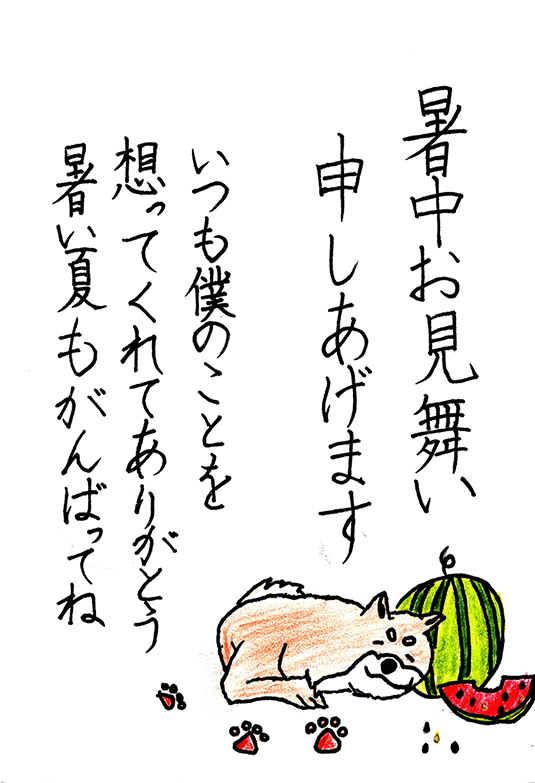 暑中お見舞い
申しあげます
いつも僕のことを
想ってくれてありがとう
暑い夏もがんばってね